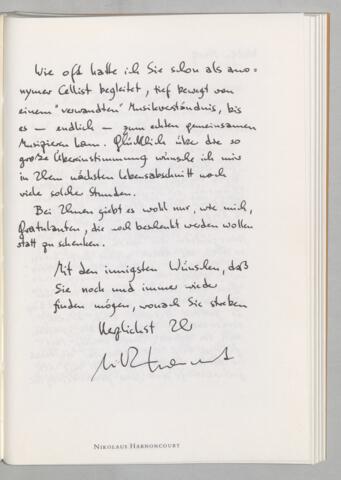 Wie oft hatte ich Sie schon als ano-
nymer Cellist begleitet, tief bewegt von
einem "verwandten" Musikverständnis, bis
es – endlich – zum echten gemeinsamen
Musizieren kam. Glücklich über die so
große Übereinstimmung wünsche ich mir
in Ihrem nächsten Lebensabschnitt noch
viele solche Stunden.
Bei Ihnen giebt es wohl nur, wie mich,
Gratulanten, die noch beschenkt werden wollen
statt zu schenken.
Mit den innigsten Wünschen, daß
Sie noch und immer wieder
finden mögen, wonach Sie streben
Herzlichst Ihr
NIKOLAUS HARNONCOURT